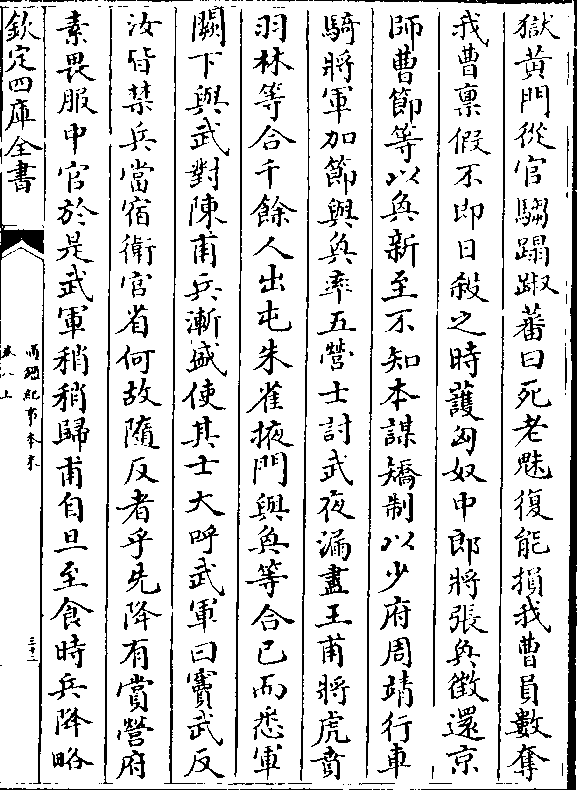 獄黄門從官騶蹋踧蕃曰死老魅復能損我曹員數奪
我曹稟假不即日殺之時䕶匈奴中郎將張奐徵還京
師曹節等以奐新至不知本謀矯制以少府周靖行車
騎將軍加節與奐率五營士討武夜漏盡王甫將虎賁
羽林等合千餘人出屯朱雀掖門與奐等合已而悉軍
闕下與武對陳甫兵漸盛使其士大呼武軍曰竇武反
汝皆禁兵當宿衛宫省何故隨反者乎先降有賞營府
素畏服中官於是武軍稍稍歸甫自旦至食時兵降略
欽定四庫全書
通鑑紀事本末
卷八上
三十二